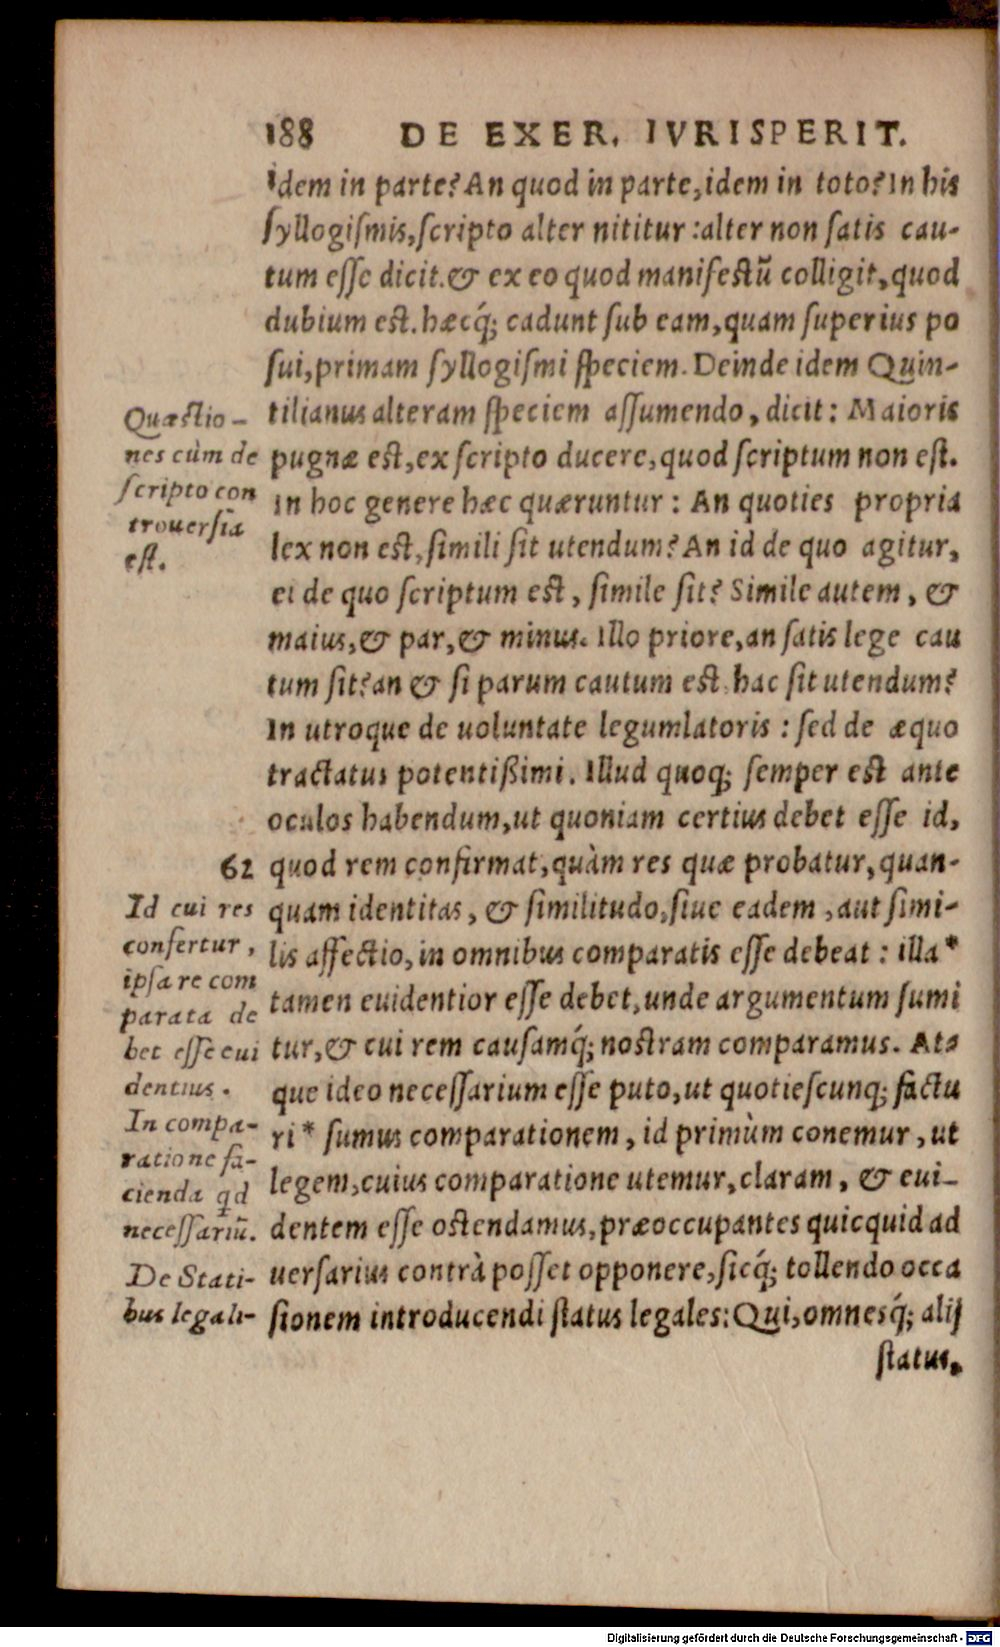 188 DE EXER. IVRISPERIT.
idem in parte? An quod in parte, idem in toto? In his
ſyllogiſmis, ſcripto alter nititur: alter non ſatis cau-
tum eſſe dicit. & ex eo quod manifeſtũ colligit, quod
dubium eſt. hæcq́; cadunt ſub eam, quam ſuperius po
ſui, primam ſyllogiſmi ſpeciem. Deinde idem Quin-
tilianus alteram ſpeciem aſſumendo, dicit: Maioris
pugnæ eſt, ex ſcripto ducere, quod ſcriptum non eſt.
In hoc genere hæc quæruntur: An quoties propria
lex non eſt, ſimili ſit utendum? An id de quo agitur,
ei de quo ſcriptum eſt, ſimile ſit? Simile autem, &
maius, & par, & minus. Illo priore, an ſatis lege cau
tum ſit? an & ſi parum cautum eſt, hac ſit utendum?
In utroque de uoluntate legumlatoris: ſed de æquo
tractatus potentißimi. Illud quoq; ſemper eſt ante
oculos habendum, ut quoniam certius debet eſſe id,
quod rem confirmat, quàm res quæ probatur, quan-
quam identitas, & ſimilitudo, ſiue eadem, aut ſimi-
lis affectio, in omnibus comparatis eſſe debeat: illa*
tamen euidentior eſſe debet, unde argumentum ſumi
tur, & cui rem cauſamq́; noſtram comparamus. At-
que ideo neceſſarium eſſe puto, ut quotieſcunq; factu
ri* ſumus comparationem, id primùm conemur, ut
legem, cuius comparatione utemur, claram, & eui-
dentem eſſe oſtendamus, præoccupantes quicquid ad
uerſarius contrà poſſet opponere, ſicq́; tollendo occa
ſionem introducendi ſtatus legales: Qui, omnesq́; alij
ſtatus,
Quæſtio-
nes cùm de
ſcripto con
trouerſia
eſt.
62
Id cui res
confertur,
ipſa re com
parata de
bet eſſe eui
dentius.
In compa-
ratione fa-
cienda qd
neceſſariũ.
De Stati-
bus legali-
Digitalisierung gefördert durch die Deutsche Forschungsgemeinschaft - DFG